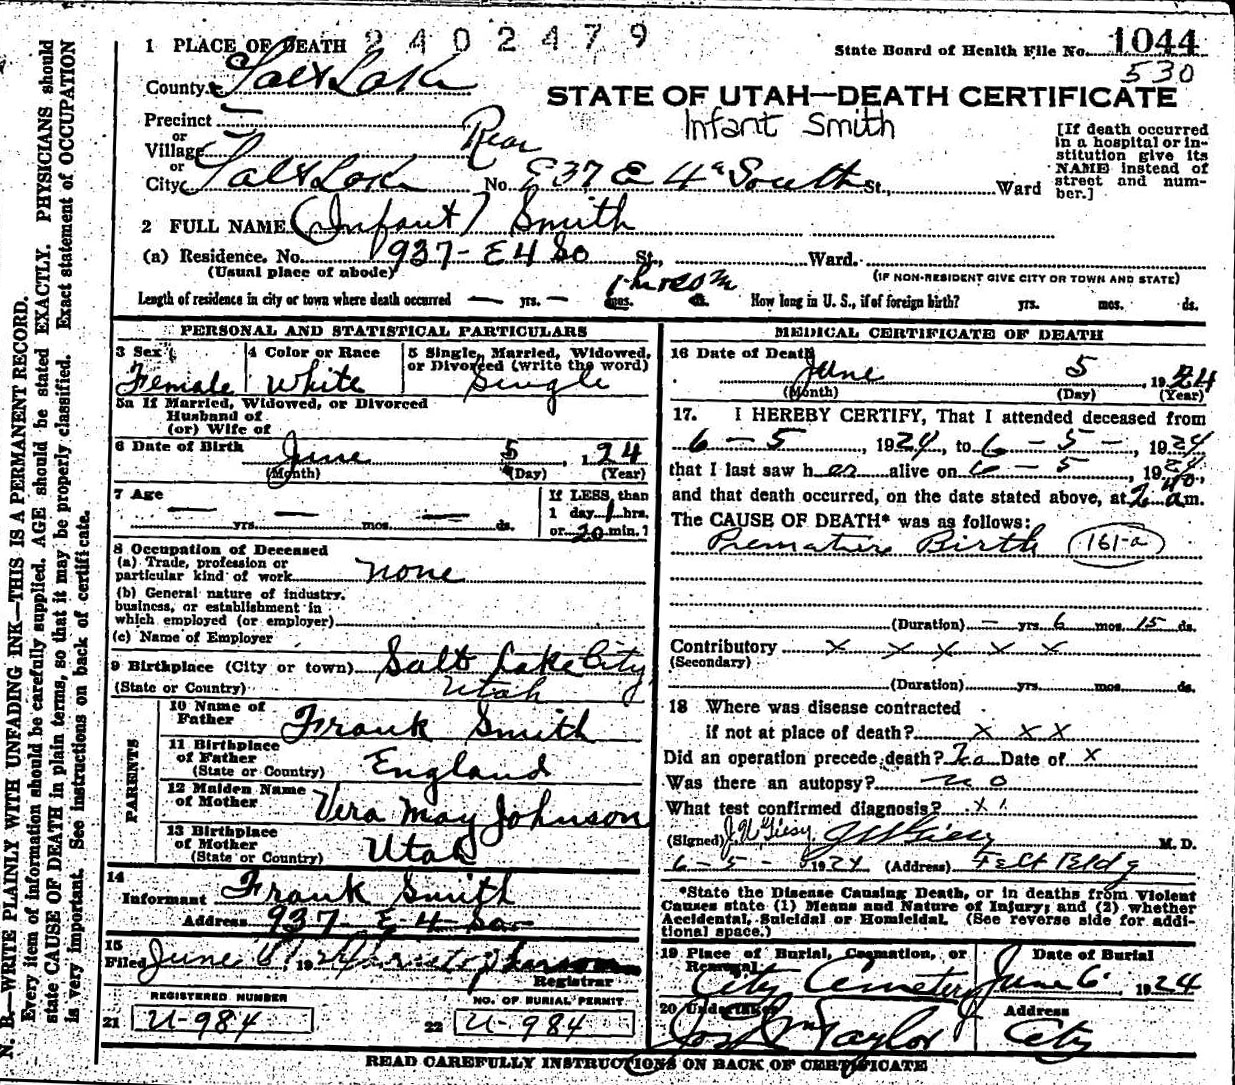 1 PLACE OF DEATH 2402479
State Board of Health File No. 1044
530
County Salt Lake
STATE OF UTAH—DEATH CERTIFICATE
Infant Smith
Precinct 5
or
Village
Rear
or
City Salt Lake No. 937 E 4th South St., Ward
[If death occurred
in a hospital or in-
stitution give its
NAME instead of
street and num-
ber.]
2 FULL NAME (Infant) Smith
(a) Residence. No. 937-E 4 So St., Ward.
(Usual place of abode)
(IF NON-RESIDENT GIVE CITY OR TOWN AND STATE)
1 hr 20 m
Length of residence in city or town where death occurred — yrs. — mos. ds. How long in U. S., if of foreign birth? yrs. mos. ds.
PERSONAL AND STATISTICAL PARTICULARS
3 Sex 4 Color or Race 5 Single, Married, Widowed,
or Divorced (write the word)
Female White Single
5a If Married, Widowed, or Divorced
Husband of
(or) Wife of
6 Date of Birth June 5, 1924
(Month) (Day) (Year)
7 Age If LESS than
1 day 1 hrs.
— yrs. — mos. — ds. or 20 min.?
8 Occupation of Deceased
(a) Trade, profession or
particular kind of work none
(b) General nature of industry,
business, or establishment in
which employed (or employer)
(c) Name of Employer
9 Birthplace (City or town) Salt Lake City
(State or Country) Utah
PARENTS
10 Name of
Father Frank Smith
11 Birthplace
of Father
(State or Country) England
12 Maiden Name
of Mother Vera May Johnson
13 Birthplace
of Mother
(State or Country) Utah
14
Informant Frank Smith
Address 937-E-4-So-
15
Filed June 6, 192
Registrar
REGISTERED NUMBER NO. OF BURIAL PERMIT
21 U-984 22 U-984
MEDICAL CERTIFICATE OF DEATH
16 Date of Death June 5, 1924
(Month) (Day) (Year)
17. I HEREBY CERTIFY, That I attended deceased from
6-5 1924, to 6-5-, 1924
that I last saw her alive on 6-5, 1924
and that death occurred, on the date stated above, at 2:40 a m.
The CAUSE OF DEATH* was as follows:
Premature Birth 161-a
(Duration) — yrs. 6 mos. 15 ds.
Contributory x x x x x
(Secondary)
(Duration) yrs. mos. ds.
18 Where was disease contracted
if not at place of death? x x x
Did an operation precede death? No Date of x
Was there an autopsy? no
What test confirmed diagnosis? x
(Signed) J.W. Giesy J W Giesy M. D.
6-5-1924 (Address) Felt Bldg
*State the Disease Causing Death, or in deaths from Violent
Causes state (1) Means and Nature of Injury; and (2) whether
Accidental, Suicidal or Homicidal. (See reverse side for addi-
tional space.)
19 Place of Burial, Cremation, or
Removal Date of Burial
City Cemetery June 6, 1924
20 Undertaker Address
Jos Wm Taylor City
READ CAREFULLY INSTRUCTIONS ON BACK OF CERTIFICATE
N. B.—WRITE PLAINLY WITH UNFADING INK—THIS IS A PERMANENT RECORD.
Every item of information should be carefully supplied. AGE should be stated EXACTLY. PHYSICIANS should
state CAUSE OF DEATH in plain terms, so that it may be properly classified. Exact statement of OCCUPATION
is very important. See instructions on back of certificate.